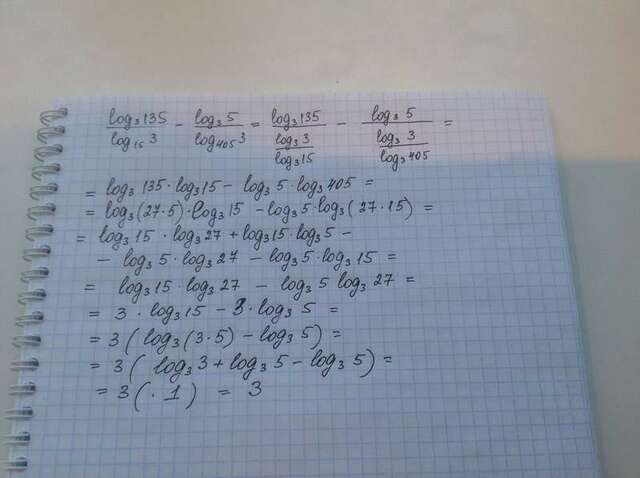 log₃135/log₁₅3 - log₃5/log₄₀₅3 = log₃135/(log₃3/log₃15) - log₃5/(log₃3/log₃405) =
= log₃135·log₃15 - log₃5·log₃405 =
= log₃(27·5)·log₃15 - log₃5·log₃(27·15) =
= log₃15·log₃27 + log₃15·log₃5 -
- log₃5·log₃27 - log₃5·log₃15 =
= log₃15·log₃27 - log₃5 log₃27 =
= 3·log₃15 - 3·log₃5 =
= 3(log₃(3·5) - log₃5) =
= 3(log₃3 + log₃5 - log₃5) =
= 3(·1) = 3